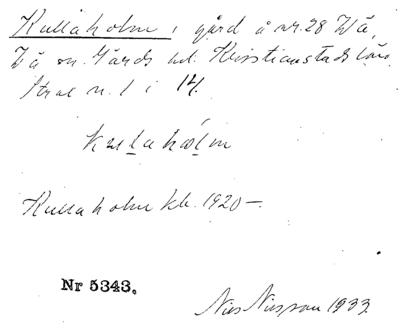 Kullaholm, gård å nr. 28 Vä,
Vä sn. Gärds hd. Kristianstads län
n. 1 i 14.
Kullaholm kb. 1920 —.
Nr 5343.
Nils Nilsson 1933.